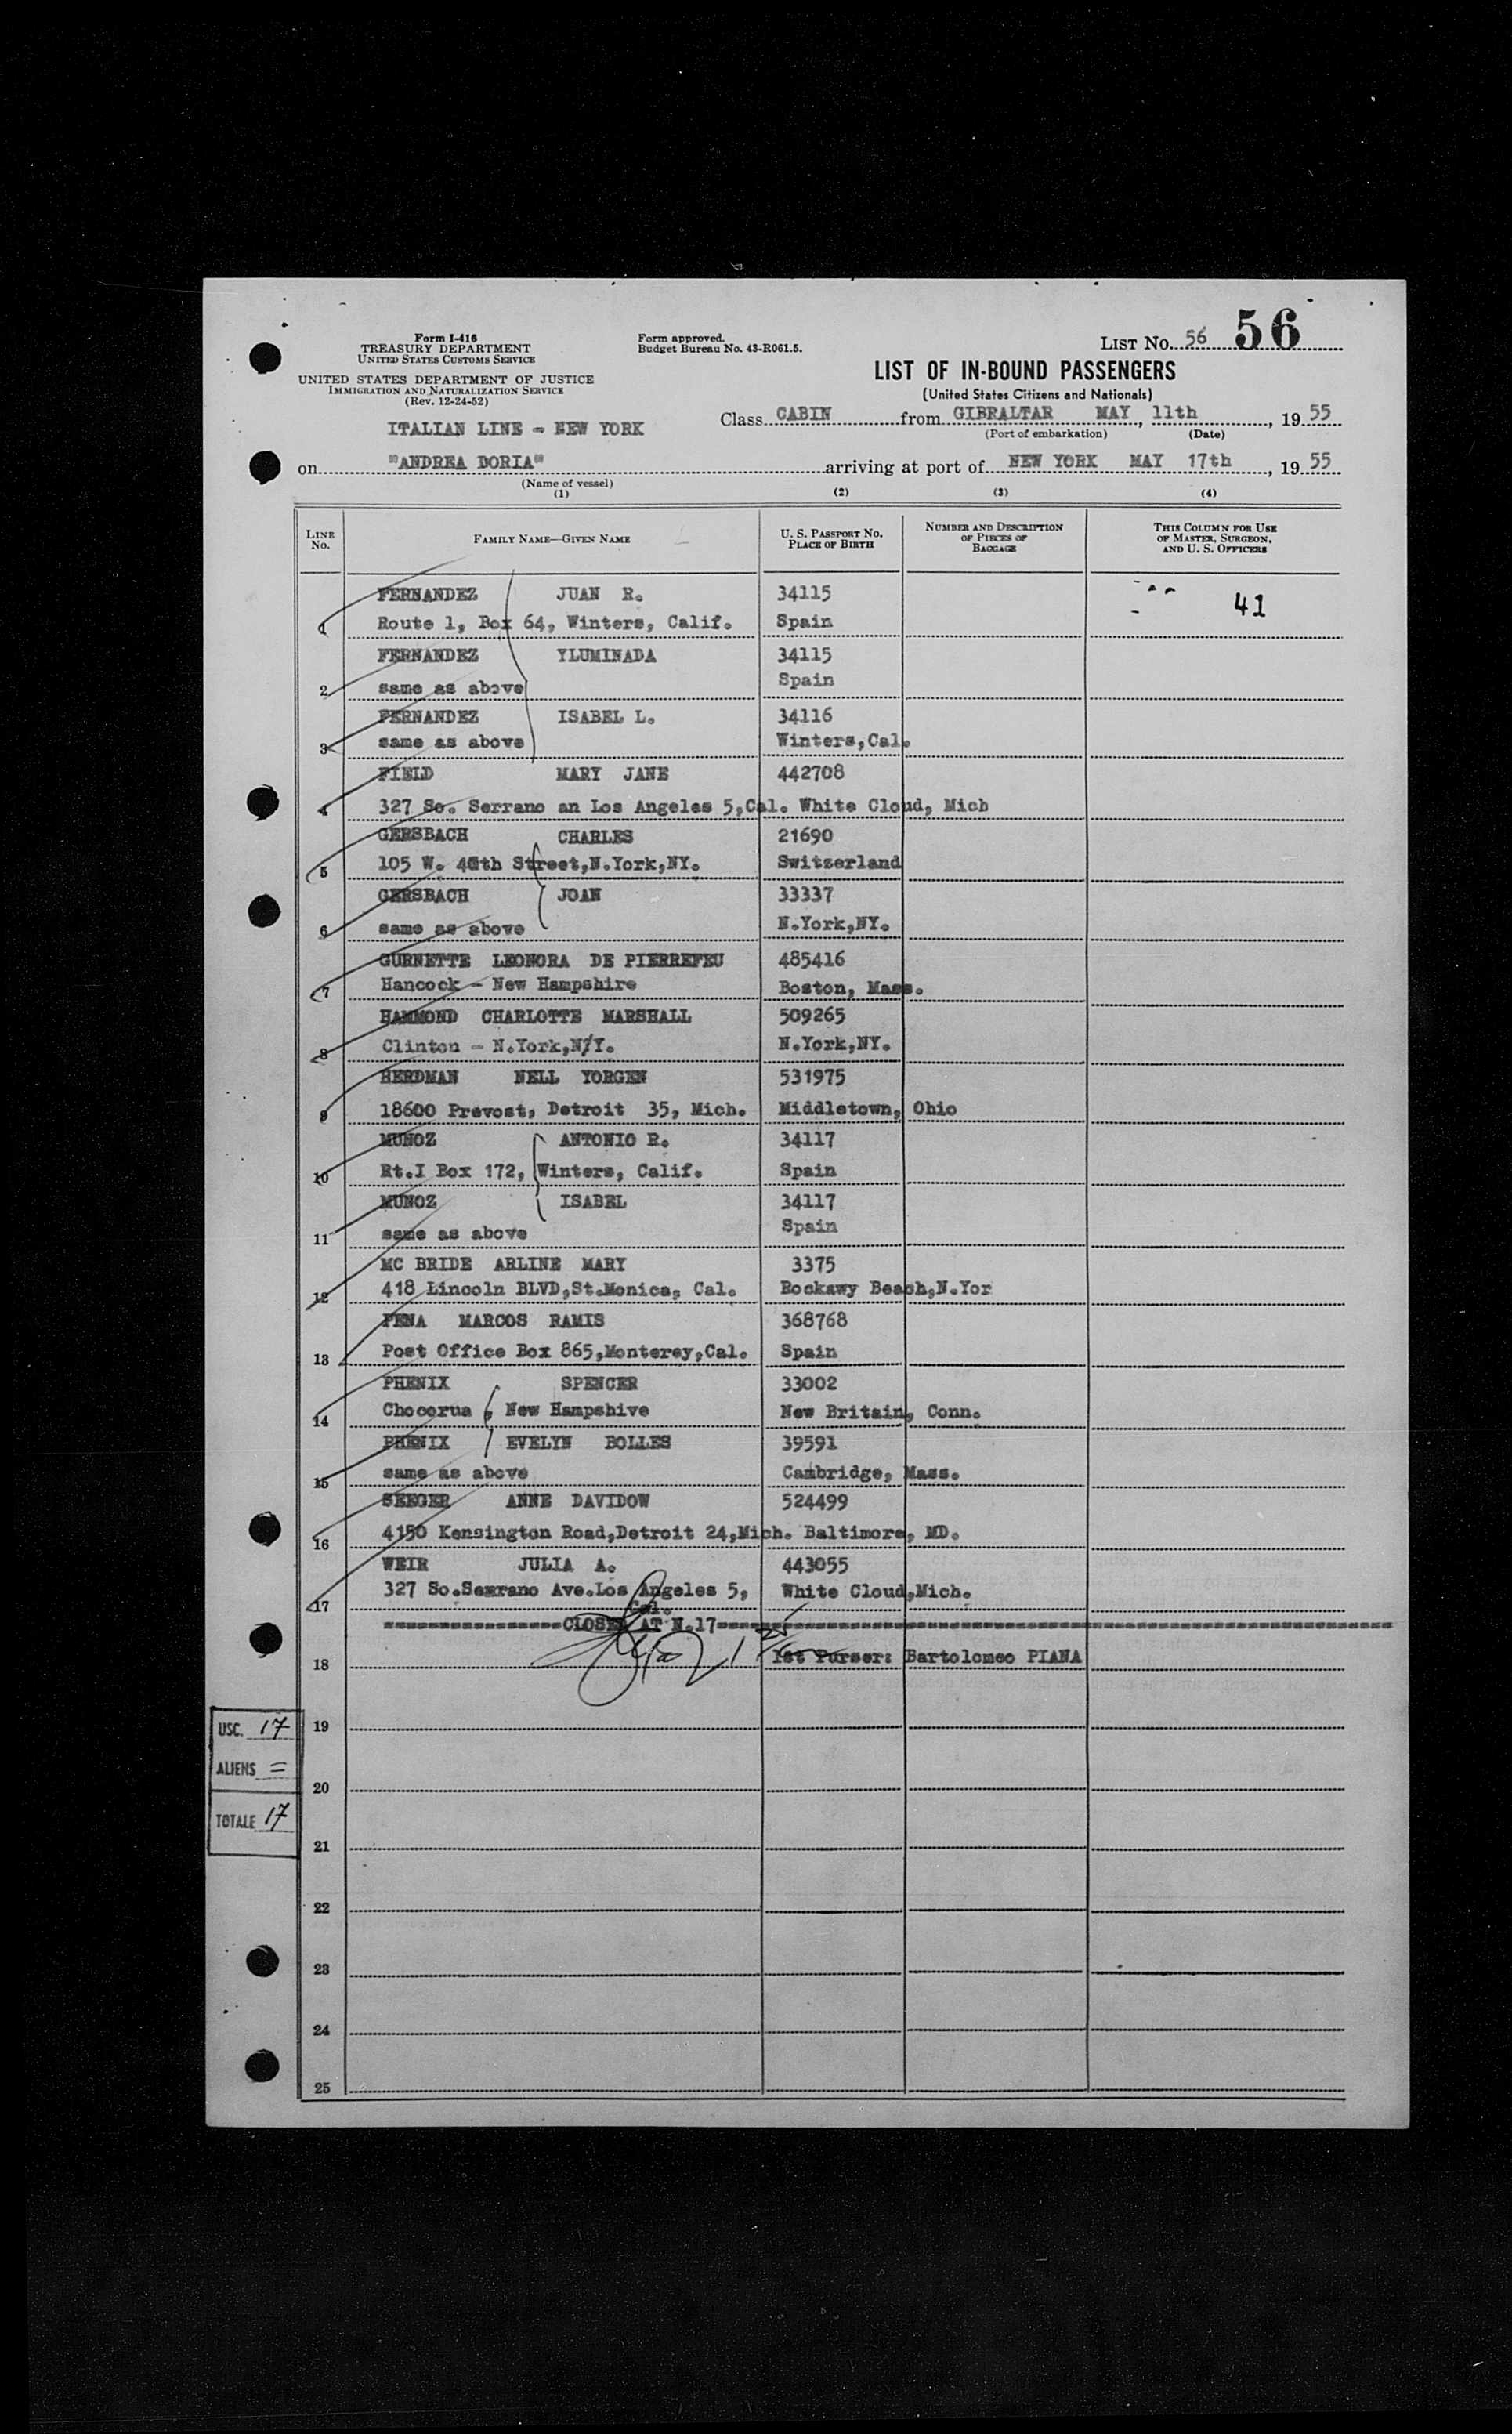 Form I-416
TREASURY DEPARTMENT
UNITED STATES CUSTOMS SERVICE
UNITED STATES DEPARTMENT OF JUSTICE
IMMIGRATION AND NATURALIZATION SERVICE
(Rev. 12-24-52)
Form approved.
Budget Bureau No. 43-R061.5.
LIST No. 56 56
LIST OF IN-BOUND PASSENGERS
(United States Citizens and Nationals)
ITALIAN LINE - NEW YORK
Class CABIN from GIBRALTAR MAY, 11th, 19 55
(Port of embarkation) (Date)
on "ANDREA DORIA" arriving at port of NEW YORK MAY 17th, 19 55
(Name of vessel)
(1) (2) (3) (4)
LINE No. FAMILY NAME—GIVEN NAME U. S. PASSPORT No. PLACE OF BIRTH NUMBER AND DESCRIPTION OF PIECES OF BAGGAGE THIS COLUMN FOR USE OF MASTER, SURGEON, AND U. S. OFFICERS
FERNANDEZ JUAN R. 34115 41
1 Route 1, Box 64, Winters, Calif. Spain
FERNANDEZ YLUMINADA 34115
2 same as above Spain
FERNANDEZ ISABEL L. 34116
3 same as above Winters,Cal.
FIELD MARY JANE 442708
4 327 So. Serrano an Los Angeles 5,Cal. White Cloud, Mich
GERSBACH CHARLES 21690
5 105 W. Street,N.York,NY. Switzerland
GERSBACH JOAN 33337
6 same as above N.York,NY.
GURNETTE LEONORA DE PIERREFEU 485416
7 Hancock - New Hampshire Boston, Mass.
HAMMOND CHARLOTTE MARSHALL 509265
8 Clinton - N.York,N/Y. N.York,NY.
HERDMAN NELL YORGEN 531975
9 18600 Prevost, Detroit 35, Mich. Middletown, Ohio
MUNOZ ANTONIO R. 34117
10 Rt.I Box 172, Winters, Calif. Spain
MUNOZ ISABEL 34117
11 same as above Spain
MC BRIDE ARLINE MARY 3375
12 418 Lincoln BLVD,St.Monica, Cal. Rockawy Beach,N.Yor
PENA MARCOS RAMIS 368768
13 Post Office Box 865,Monterey,Cal. Spain
PHENIX SPENCER 33002
14 Chocorua , New Hampshive New Britain, Conn.
PHENIX EVELYN BOLLES 39591
15 same as above Cambridge, Mass.
SEEGER ANNE DAVIDOW 524499
16 4150 Kensington Road,Detroit 24,Mich. Baltimore, MD.
WEIR JULIA A. 443055
17 327 So.Serrano Ave.Los Angeles 5, White Cloud,Mich.
Cal.
CLOSED AT N.17
1st Purser: Bartolomeo PIANA
18
USC. 17
19
ALIENS =
20
TOTALE 17
21
22
23
24
25